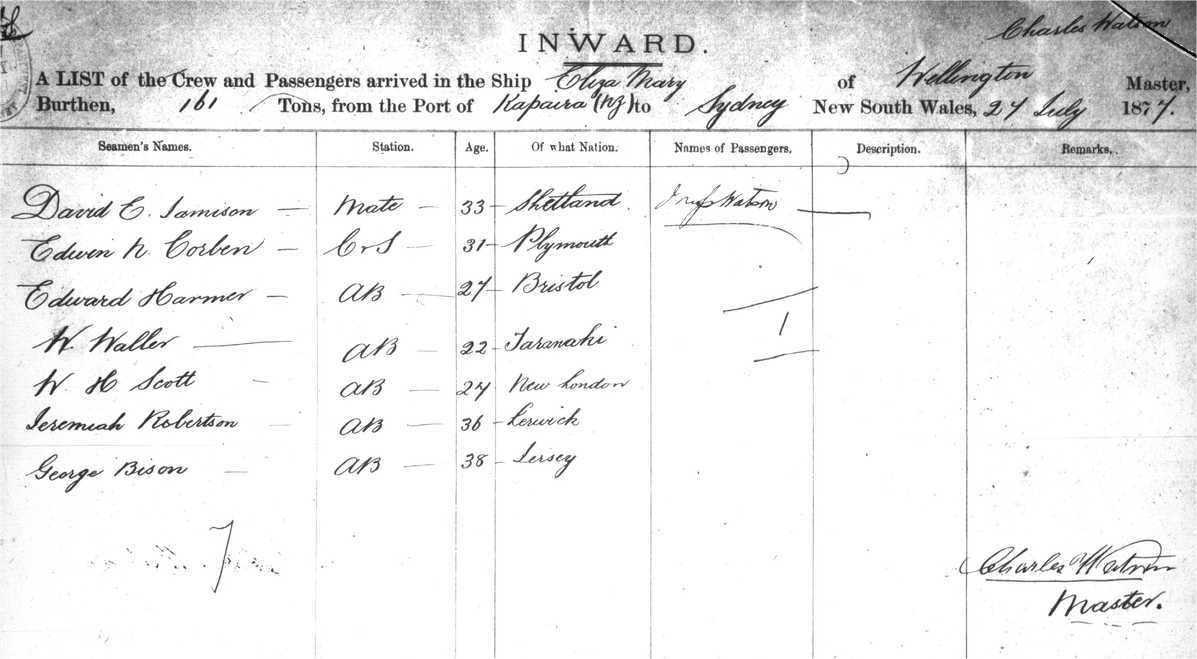 Charles Watson
INWARD.
A LIST of the Crew and Passengers arrived in the Ship Eliza Mary of Wellington Master,
Burthen, 161 Tons, from the Port of Kapaira (NZ) to Sydney New South Wales, 27 July 1877.
Seamen's Names. Station. Age. Of what Nation. Names of Passengers. Description. Remarks.
David E. Jamison — Mate — 33 — Shetland Mrs Watson —
Edwin N. Corben — C & S — 31 — Plymouth
Edward Harmer — AB — 27 — Bristol
W. Waller — AB — 22 — Taranaki 1
W. H Scott — AB — 27 New London
Jeremiah Robertson — AB — 36 — Lerwick
George Bison — AB — 38 — Jersey
7
Charles Watson
Master.